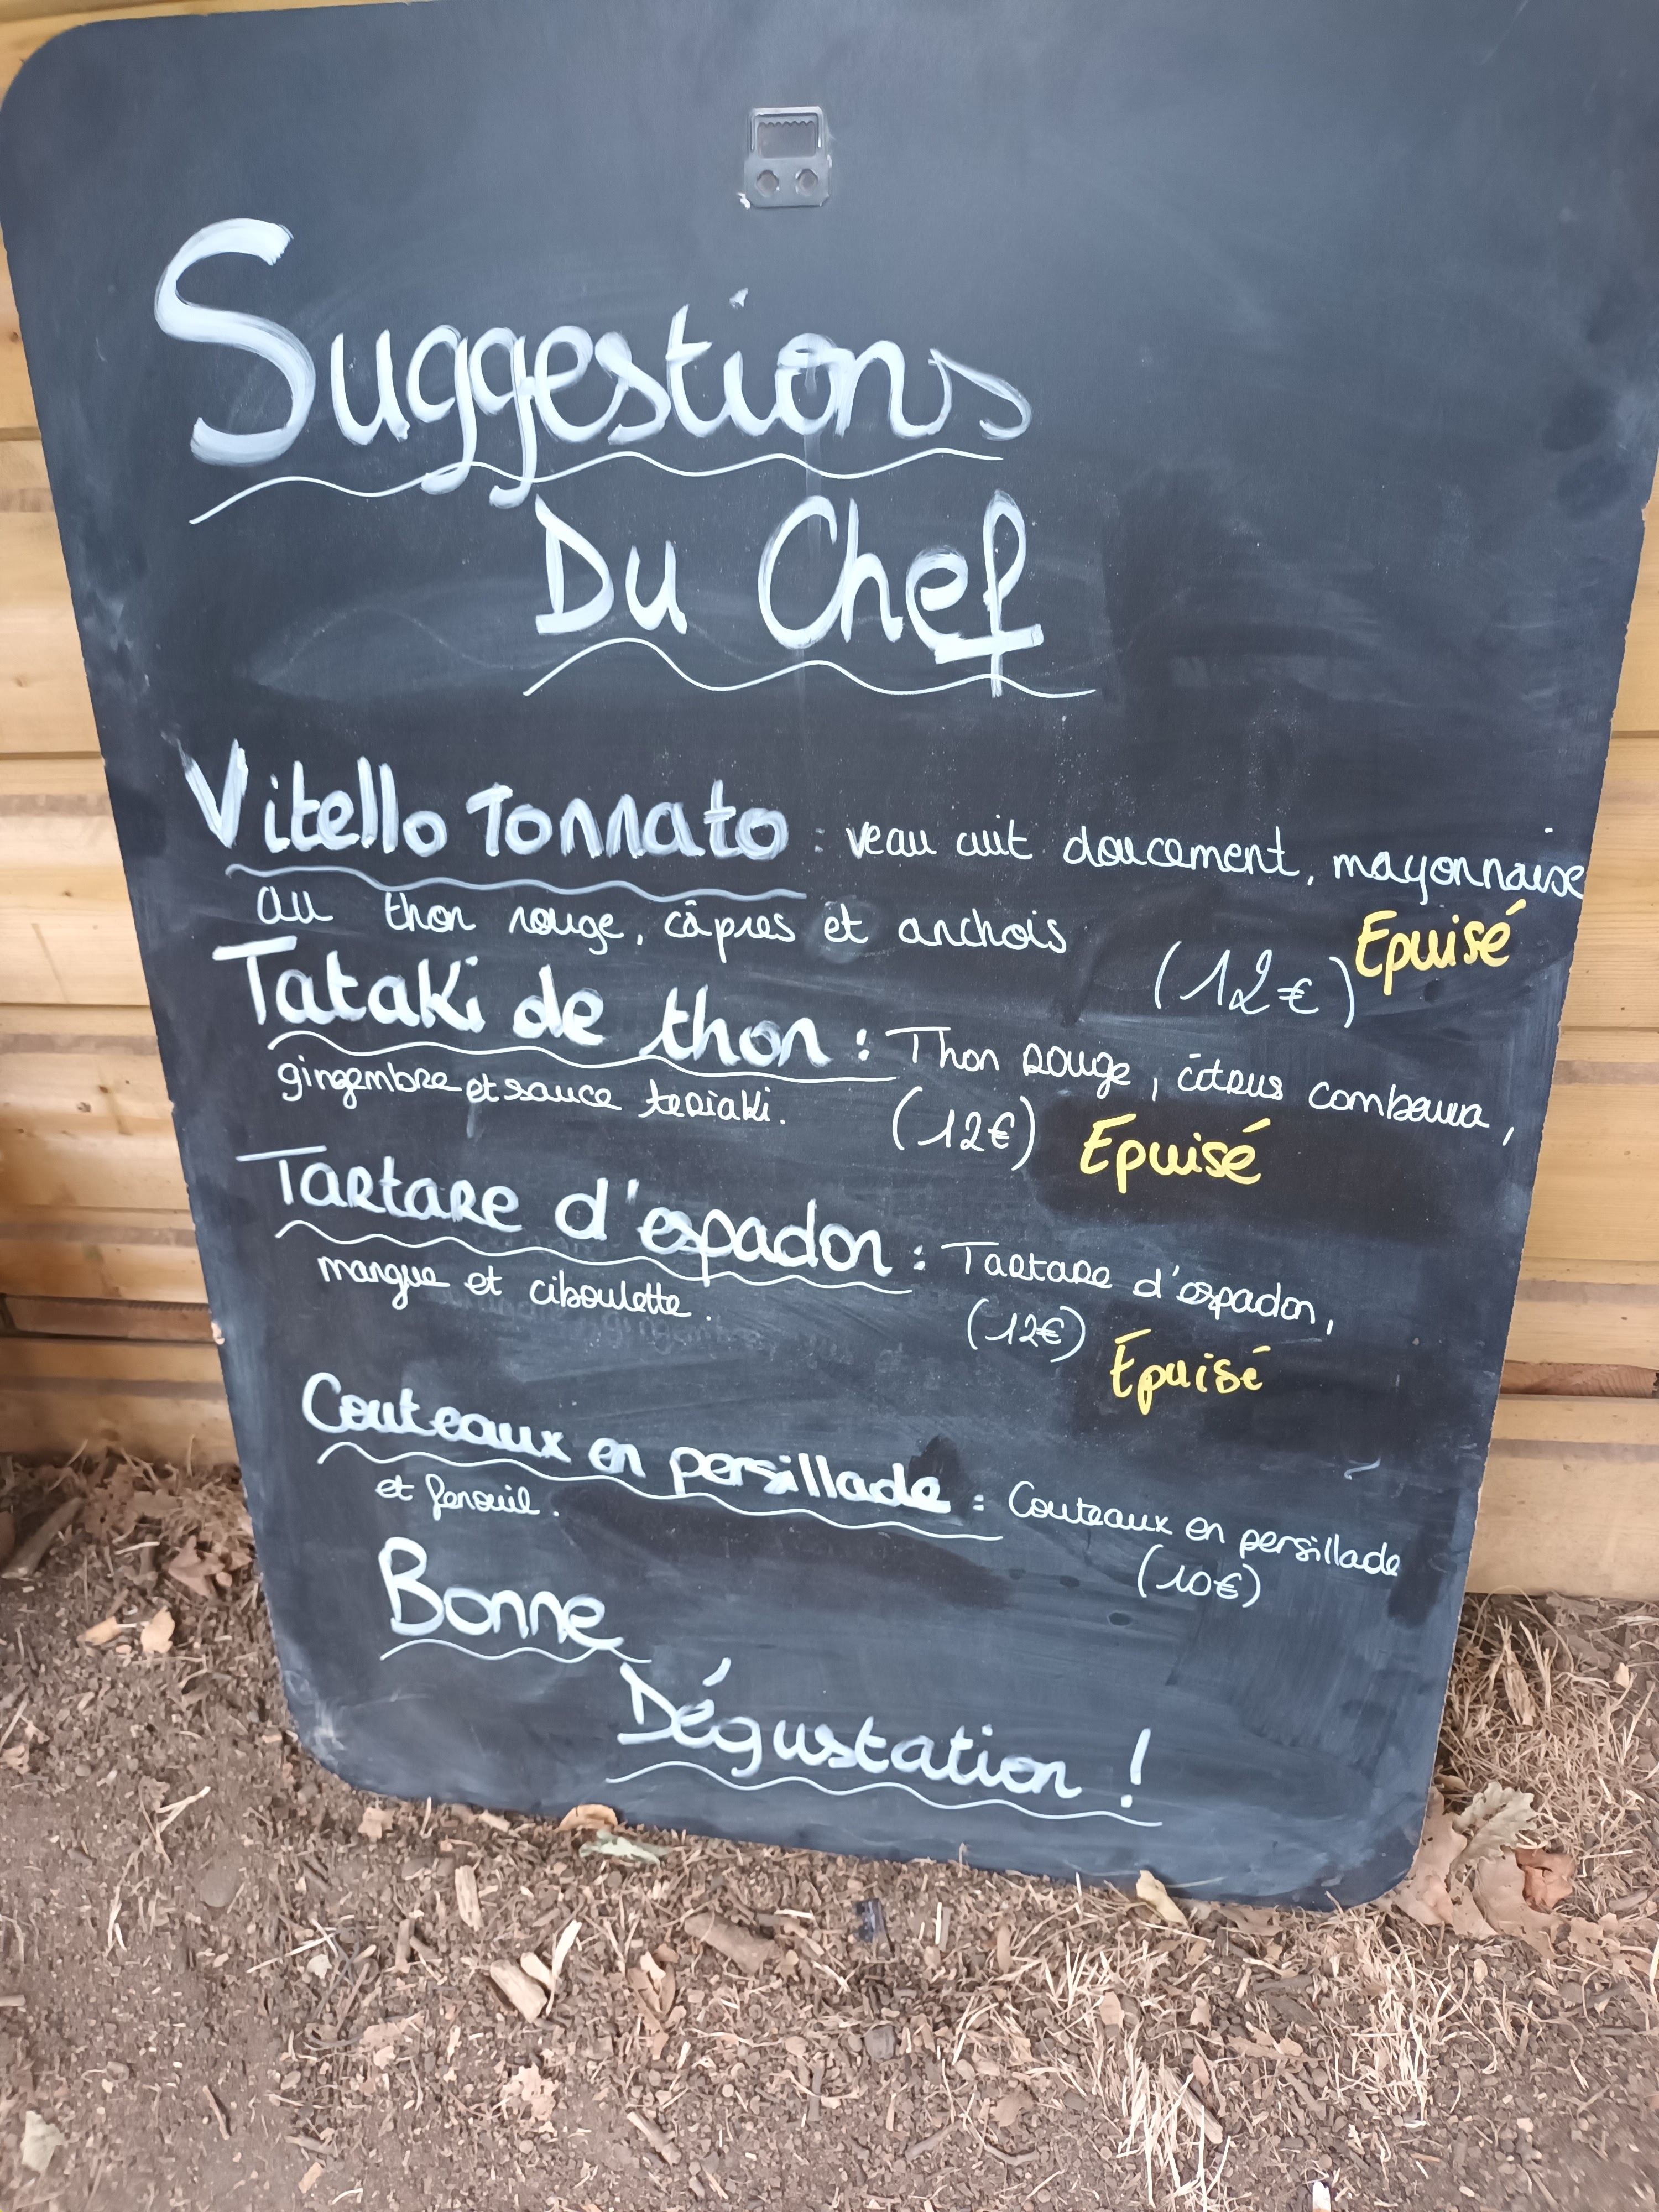 Suggestions
Du Chef
Vitello Tonnato : veau cuit doucement, mayonnaise
au thon rouge, câpres et anchois (12€) Epuisé
Tataki de thon : Thon rouge, citrus combawa,
gingembre et sauce teriaki. (12€) Epuisé
Tartare d'espadon : Tartare d'espadon,
mangue et ciboulette. (12€) Epuisé
Couteaux en persillade : Couteaux en persillade
et fenouil. (10€)
Bonne
Dégustation !